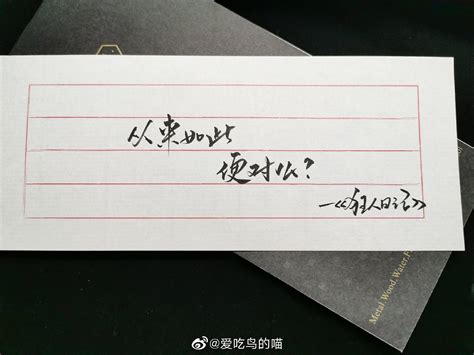 从来如此
便对么？
—《狂人日记》
Metal Wood Water, F
@爱吃鸟的喵